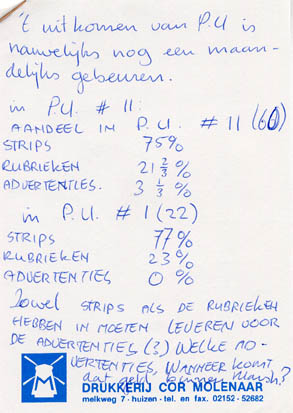 't uitkomen van P.U is
nauwelijks nog een maan-
delijks gebeuren.
in P.U. # 11:
AANDEEL IN P.U. # 11 (60)
STRIPS 75%
RUBRIEKEN 21 2/3 %
ADVERTENTIES. 3 1/3 %
in P.U. # 1 (22)
STRIPS 77%
RUBRIEKEN 23%
ADVERTENTIES 0 %
Zowel STRIPS ALS DE RUBRIEKEN
HEBBEN IN MOETEN LEVEREN VOOR
DE ADVERTENTIES (3) WELKE AD-
VERTENTIES, WANNEER komt
dat geld binnen
DRUKKERIJ COR MOLENAAR
melkweg 7 - huizen - tel. en fax. 02152 - 52682